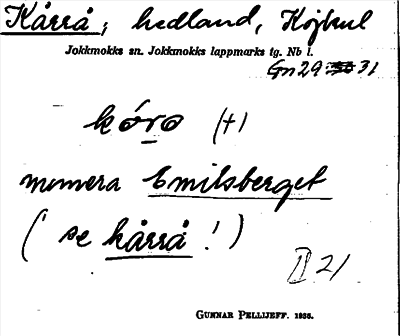 Kårrå; hedland, Kåjkul
Jokkmokks sn. Jokkmokks lappmarks tg. Nb l.
Gn 29 31
kóro (+)
numera Emilsberget
( se kårrå ! )
II 21
GUNNAR PELLIJEFF. 1955.